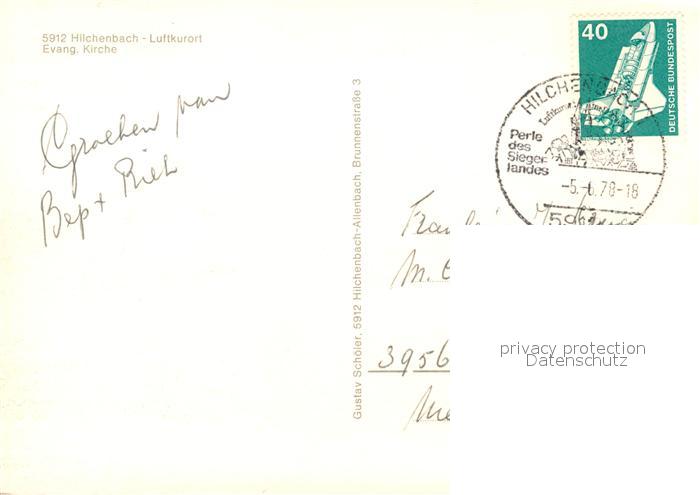 5912 Hilchenbach - Luftkurort
Evang. Kirche
Groeten van
Bep + Riet
Gustav Schöler, 5912 Hilchenbach-Allenbach, Brunnenstraße 3
40
DEUTSCHE BUNDESPOST
HILCHENBACH
Luftkurort
Perle
des
Sieger-
landes
-5.-6.78-18
5912
M.
3956
privacy protection
Datenschutz